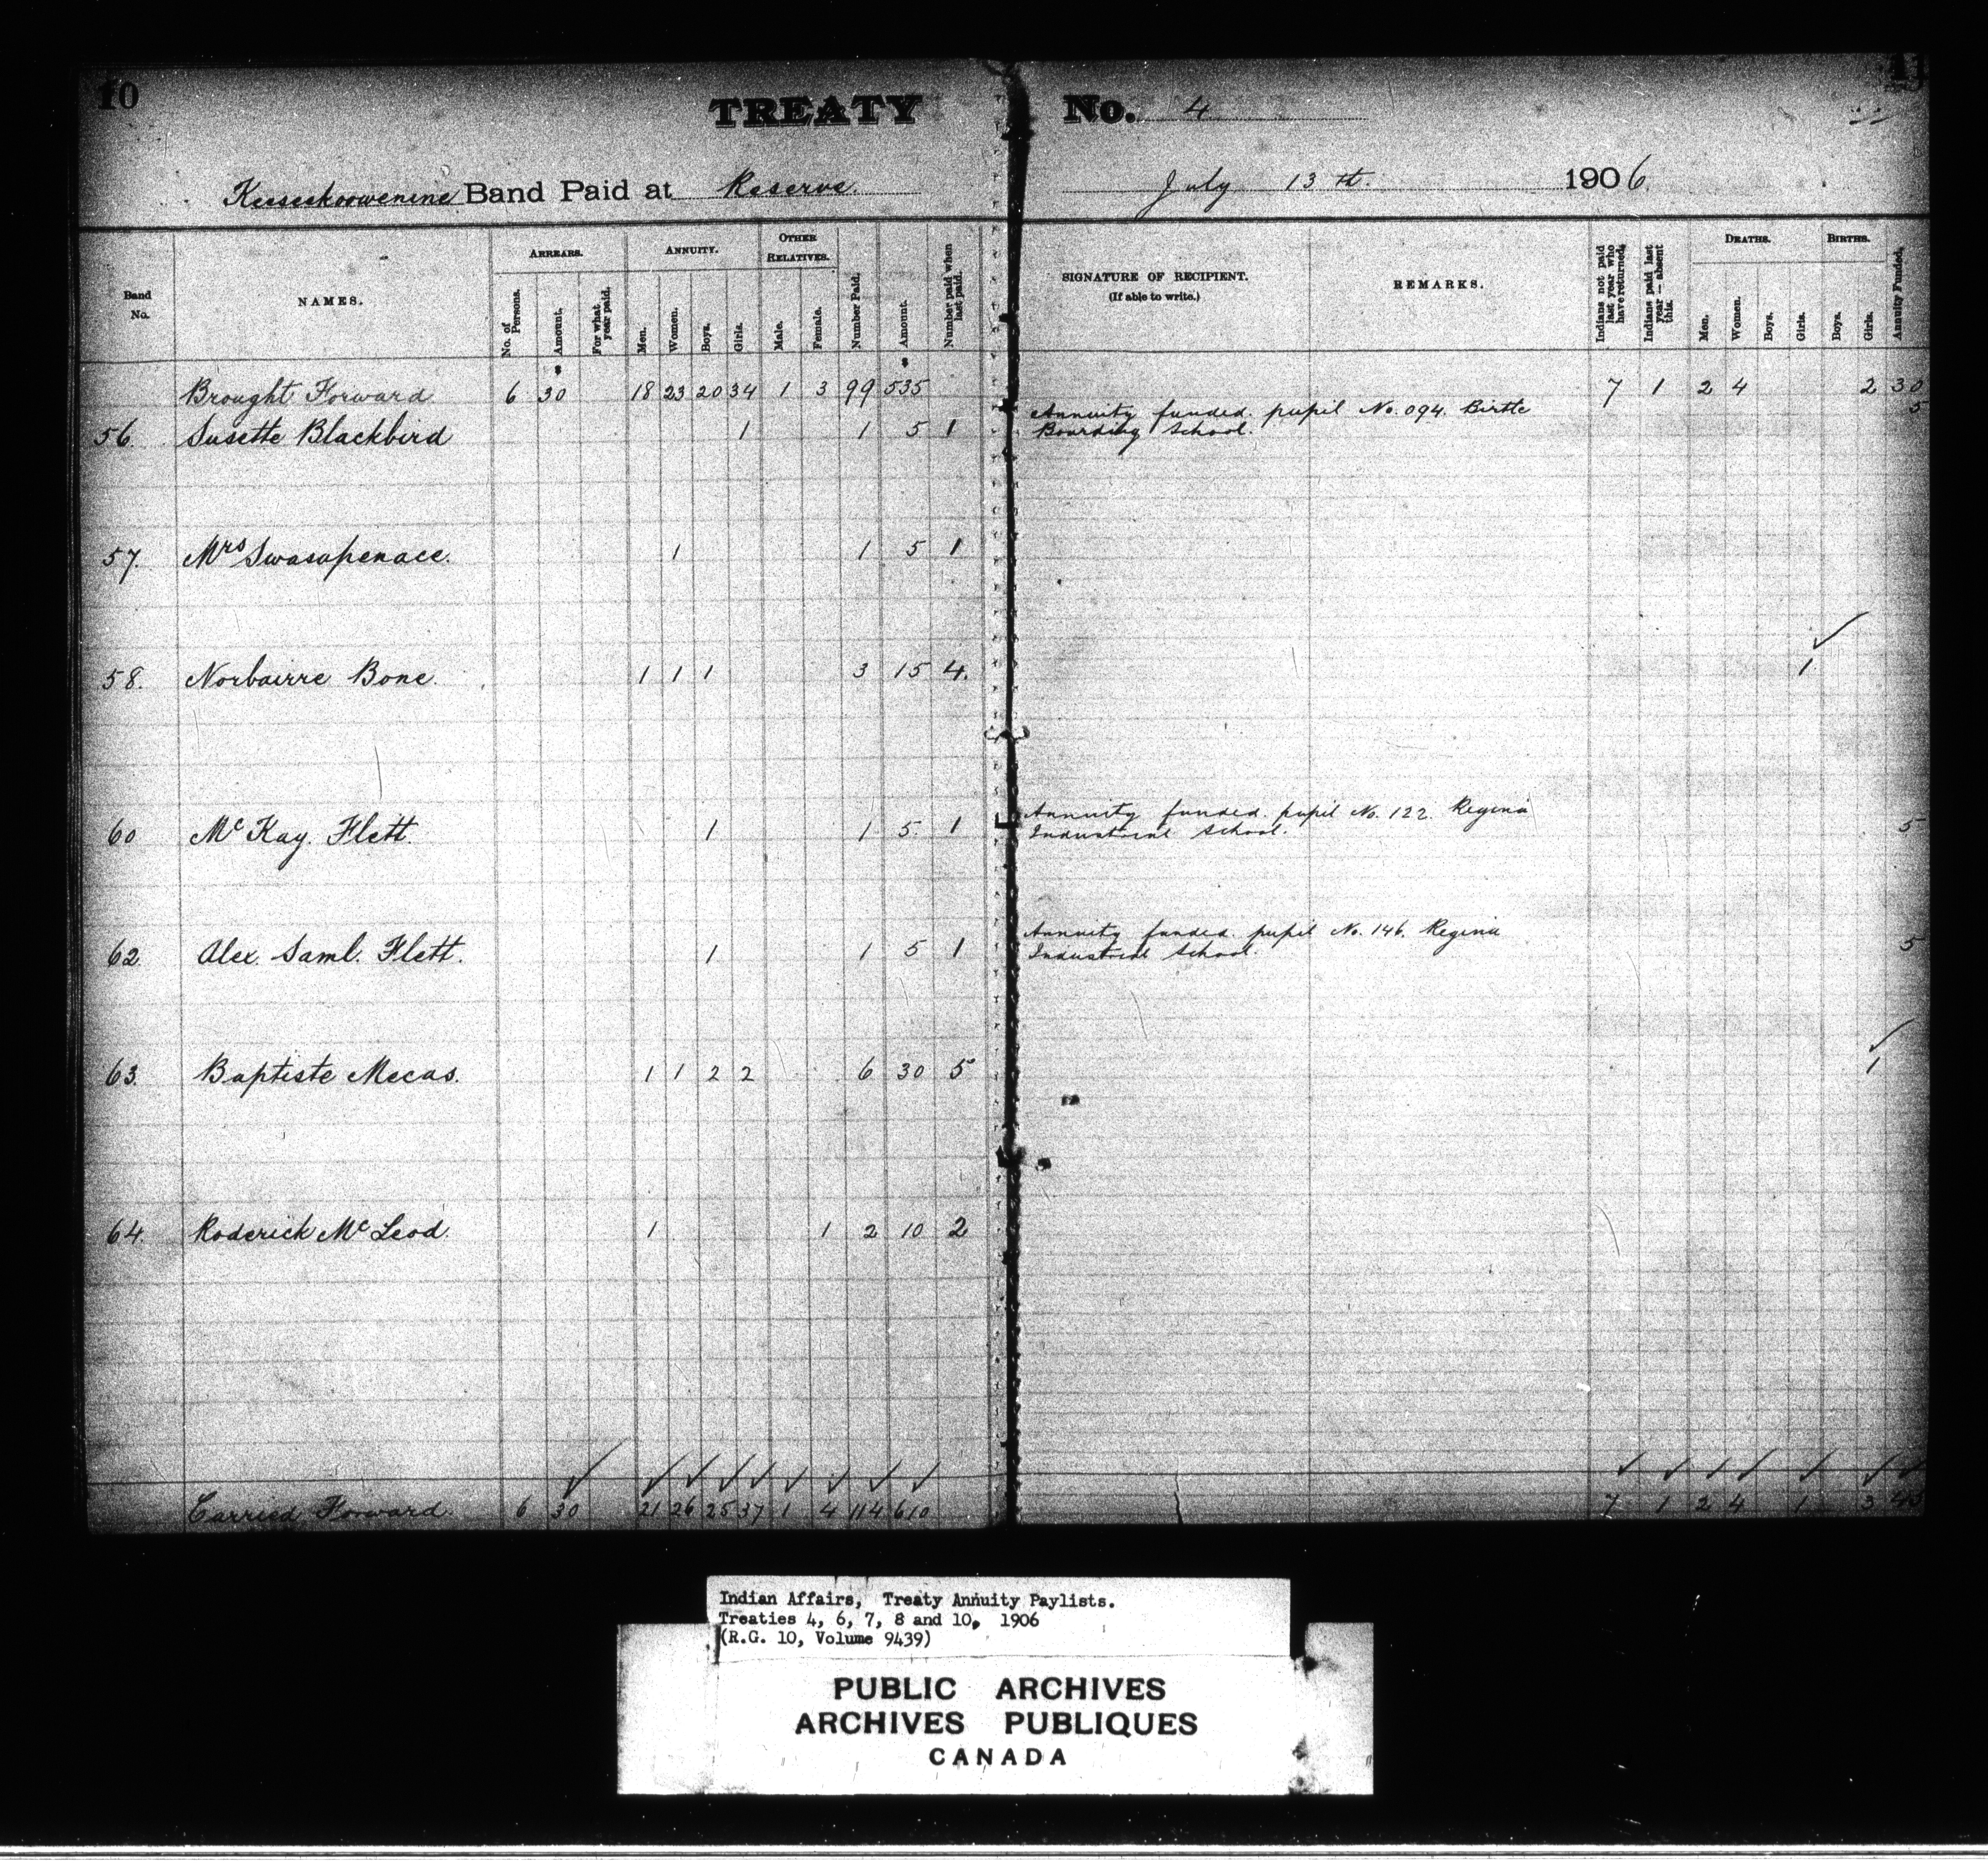 10
TREATY No. 4
11
Keeseekoowenine Band Paid at Reserve. July 13th. 1906
Band No.
NAMES.
ARREARS.
No. of Persons.
Amount.
For what year paid.
ANNUITY.
Men.
Women.
Boys.
Girls.
OTHER RELATIVES.
Male.
Female.
Number Paid.
Amount.
Number paid when last paid.
SIGNATURE OF RECIPIENT.
(If able to write.)
REMARKS.
Indians not paid last year who have returned.
Indians paid last year — absent this.
DEATHS.
Men.
Women.
Boys.
Girls.
BIRTHS.
Boys.
Girls.
Annuity Funded.
Brought Forward 6 30 18 23 20 34 1 3 99 535 7 1 2 4 2 30
56. Susette Blackbird 1 1 5 1 Annuity funded. pupil No. 094. Birtle 5
Boarding School.
57. Mrs Swasapenace. 1 1 5 1
58. Norbairre Bone. 1 1 1 3 15 4. 1
60 McKay. Flett. 1 1 5. 1 Annuity funded. pupil No. 122. Regina 5
Industrial School.
62. Alex. Saml. Flett. 1 1 5 1 Annuity funded. pupil No. 146. Regina 5
Industrial School.
63. Baptiste Mecas. 1 1 2 2 6 30 5 1
64. Roderick McLeod. 1 1 2 10 2
Carried Forward. 6 30 21 26 25 37 1 4 114 610 7 1 2 4 1 3 45
Indian Affairs, Treaty Annuity Paylists.
Treaties 4, 6, 7, 8 and 10, 1906
(R.G. 10, Volume 9439)
PUBLIC ARCHIVES
ARCHIVES PUBLIQUES
CANADA